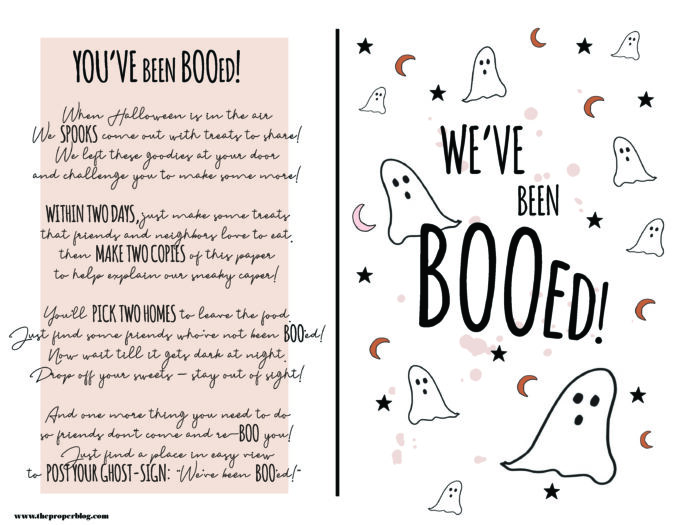 YOU'VE BEEN BOOED!
When Halloween is in the air
We SPOOKS come out with treats to share!
We left these goodies at your door
and challenge you to make some more!
WITHIN TWO DAYS, just make some treats
that friends and neighbors love to eat.
then MAKE TWO COPIES of this paper
to help explain our sneaky caper!
You'll PICK TWO HOMES to leave the food.
Just find some friends who've not been BOOed!
Now wait till it gets dark at night.
Drop off your sweets – stay out of sight!
And one more thing you need to do
so friends dont come and re-BOO you!
Just find a place in easy view
to POST YOUR GHOST-SIGN: "We've been BOOed!"
www.theproperblog.com
WE'VE
BEEN
BOOED!